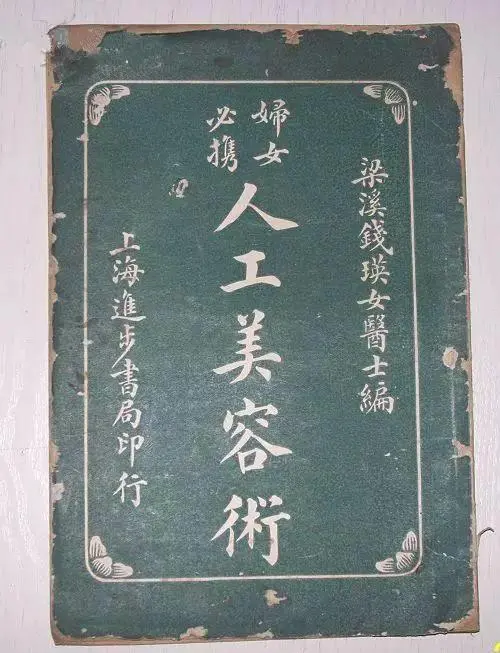 梁溪錢瑛女醫士編
婦女
必携
人工美容術
上海進步書局印行